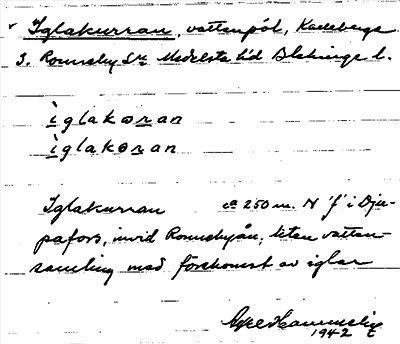 v Iglakurran, vattenpöl, Karlebergs
3. Ronneby Sn Medelsta hd Blekinge l.
ìglakoran
ìglakoran
Iglakurran ca 250 m. N 'f' i Dju-
pafors, invid Ronnebyån, liten vatten-
samling med förekomst av iglar
Axel Hammelin
1942